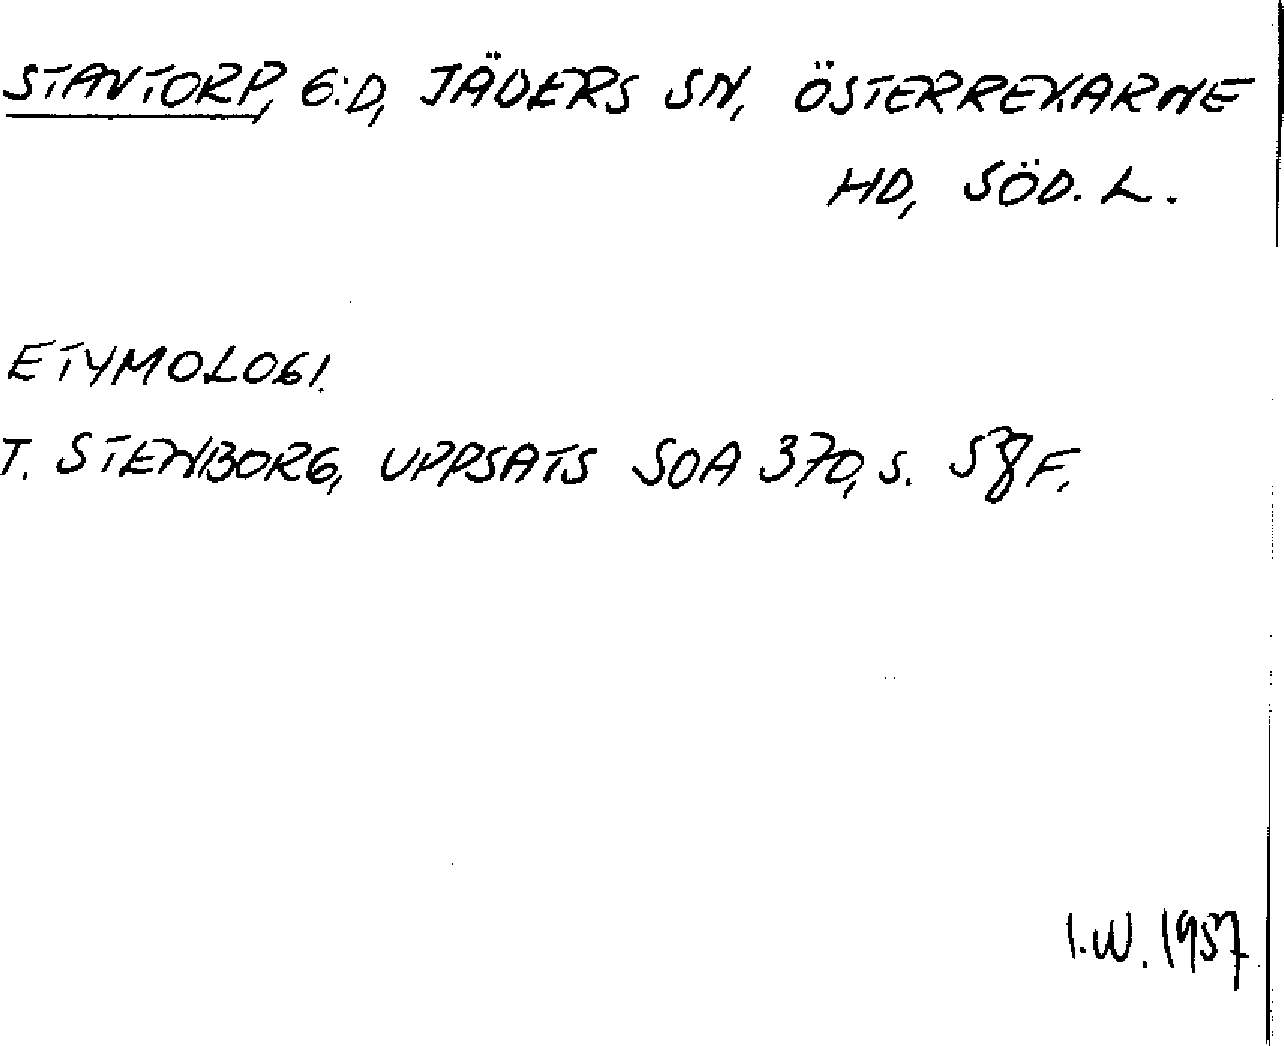 STAVTORP, G:D, JÄDERS SN, ÖSTERREKARNE
HD, SÖD. L.
ETYMOLOGI.
T. STENBORG, UPPSATS SOA 370, S. 58 F.
I.W. 1957